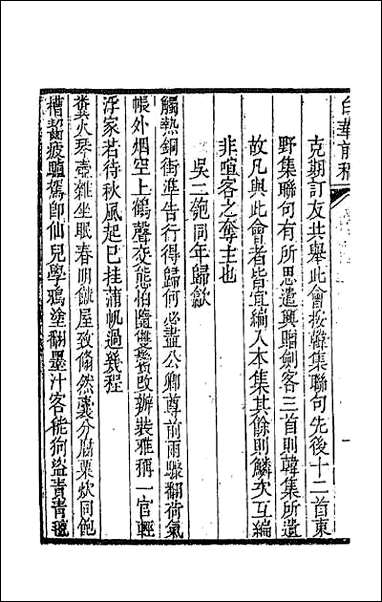 白華前稿
克期訂友共舉此會按韓集聯句先後十二首東
野集聯句有所思遣興贈劍客三首則韓集所遺
故凡與此會者皆宜編入本集其餘則麟次互編
非喧客之奪主也
吳二匏同年歸歙
觸熱銅街準告行得歸何必盡公卿尊前雨驟翻荷氣
帳外烟空上鶴聲交態怕隨雙鬢改辦裝雅稱一官輕
浮家若待秋風起已挂蒲帆過幾程
糞火琴壺雜坐眠春明僦屋致翛然囊分腐粟炊同飽
槽齧疲驢駕即仙兒學鴉塗翻墨汁客能狗盜責青氊